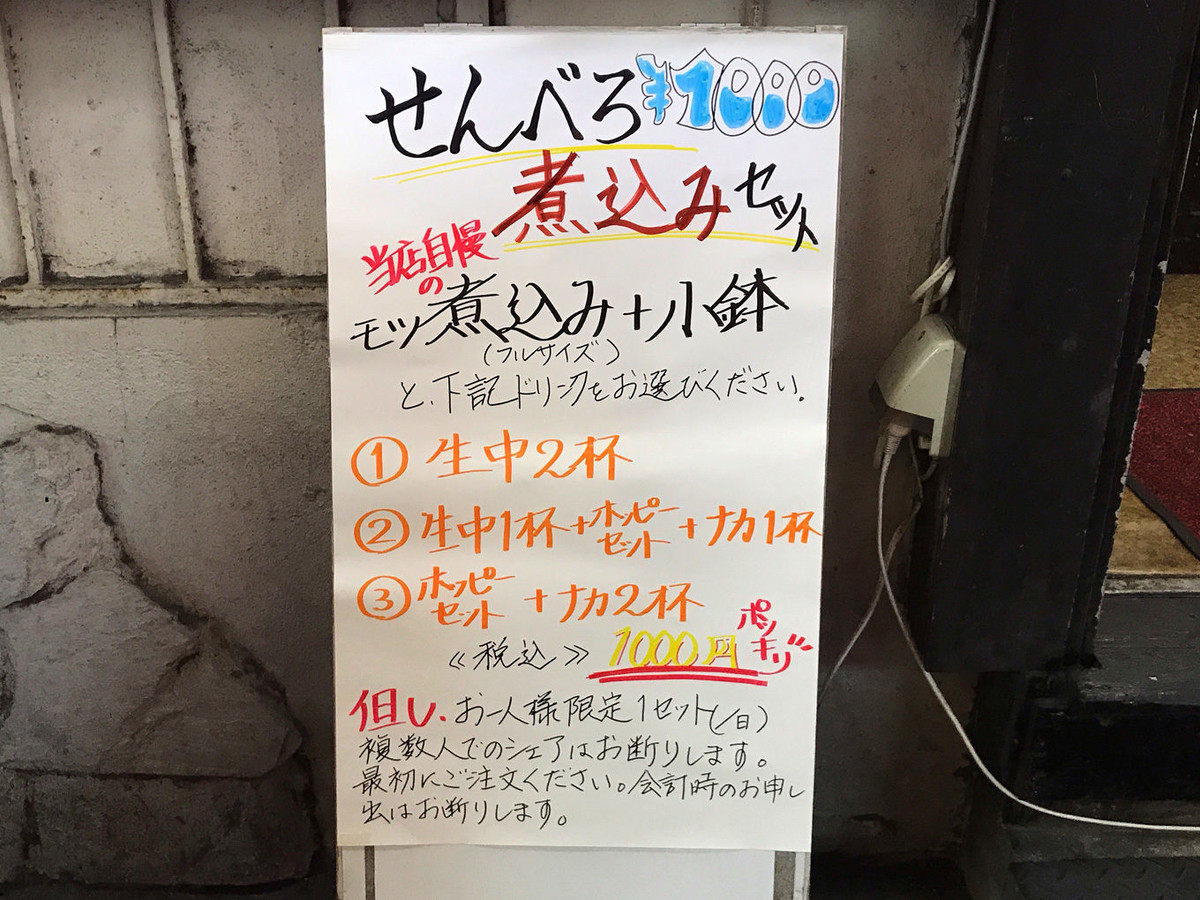 せんべろ ¥1000
煮込みセット
当店自慢の
モツ煮込み+小鉢
(フルサイズ)
と、下記ドリンクをお選びください。
① 生中2杯
② 生中1杯+ホッピーセット+ナカ1杯
③ ホッピーセット+ナカ2杯
≪税込≫ 1000円 ポッキリ
但し、お一人様限定1セット(/日)
複数人でのシェアはお断りします。
最初にご注文ください。会計時のお申し
出はお断りします。